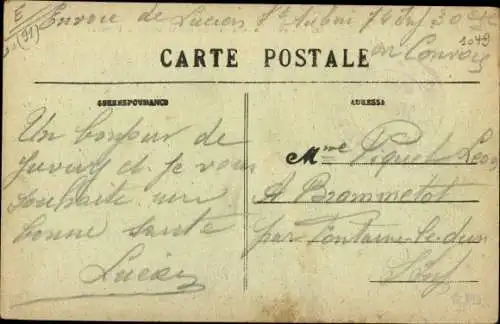 E
(91)
Envoie de Lucien St Aubin 74 Inf 30
1049
en Convoi
CARTE POSTALE
CORRESPONDANCE
ADRESSE
Un bonjour de
Juvisy et je vous
souhaite une
bonne santé
Lucien
Mme Piquet Léon
A Brametot
par Fontaine-le-dun
S Inf